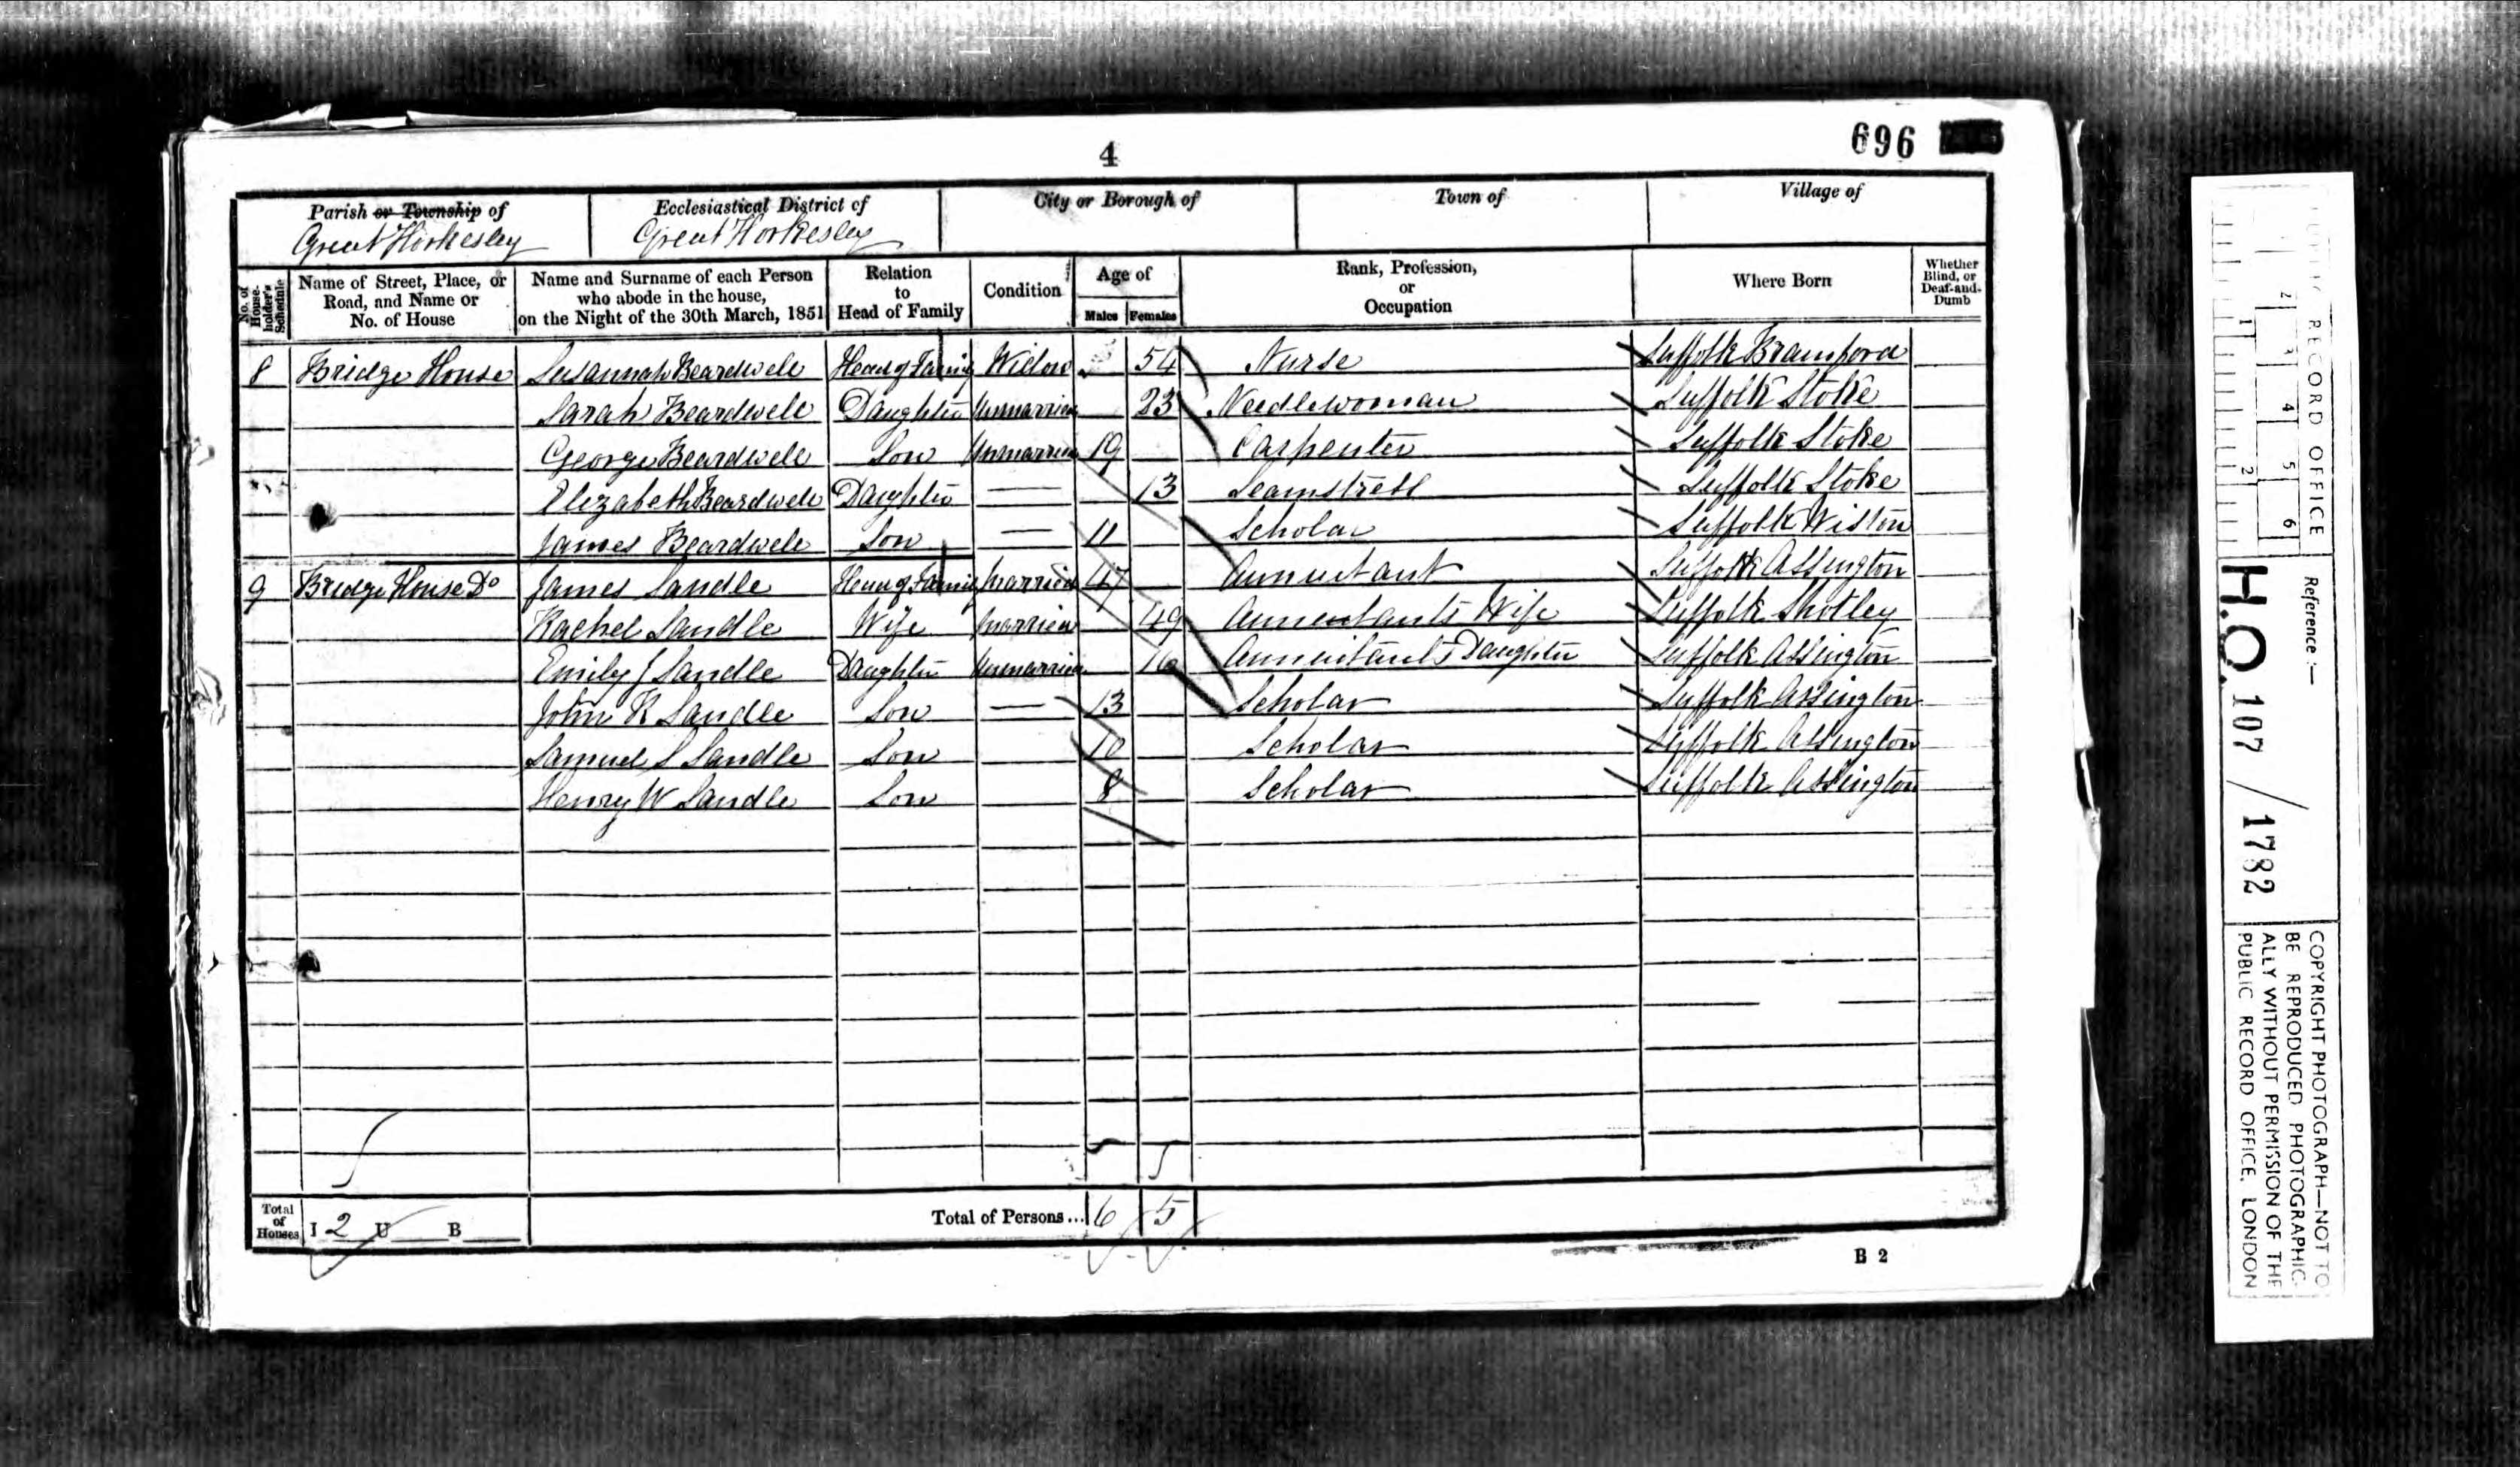 4
696
Parish or Township of
Great Horkesley
Ecclesiastical District of
Great Horkesley
City or Borough of
Town of
Village of
No. of House-holder's Schedule
Name of Street, Place, or Road, and Name or No. of House
Name and Surname of each Person who abode in the house, on the Night of the 30th March, 1851
Relation to Head of Family
Condition
Age of
Males
Females
Rank, Profession, or Occupation
Where Born
Whether Blind, or Deaf-and-Dumb
8 Bridge House Susannah Beardwell Head of Family Widow 54 Nurse Suffolk Bramford
Sarah Beardwell Daughter Unmarried 23 Needlewoman Suffolk Stoke
George Beardwell Son Unmarried 19 Carpenter Suffolk Stoke
Elizabeth Beardwell Daughter — 13 Seamstress Suffolk Stoke
James Beardwell Son — 11 Scholar Suffolk Wiston
9 Bridge House Do James Sandle Head of Family Married 47 Annuitant Suffolk Assington
Rachel Sandle Wife Married 49 Annuitants Wife Suffolk Shotley
Emily J Sandle Daughter Unmarried 16 Annuitants Daughter Suffolk Assington
John R Sandle Son — 13 Scholar Suffolk Assington
Samuel S Sandle Son 10 Scholar Suffolk Assington
Henry W Sandle Son 8 Scholar Suffolk Assington
Total of Houses I 2 U B
Total of Persons... 6 5
B 2
PUBLIC RECORD OFFICE
1 2 3 4 5 6
1 2
Reference :—
H.O. 107 / 1782
COPYRIGHT PHOTOGRAPH—NOT TO
BE REPRODUCED PHOTOGRAPHIC-
ALLY WITHOUT PERMISSION OF THE
PUBLIC RECORD OFFICE, LONDON